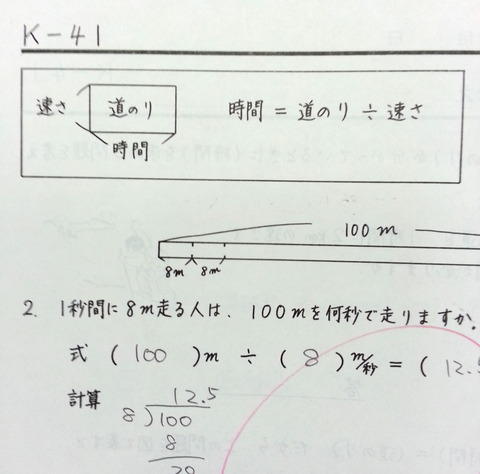 K-41
速さ 道のり 時間 = 道のり ÷ 速さ
時間
100m
8m 8m
2. 1秒間に8m走る人は、100mを何秒で走りますか。
式 (100)m ÷ (8)m/秒 = (12.5
計算 12.5
8)100
8
20